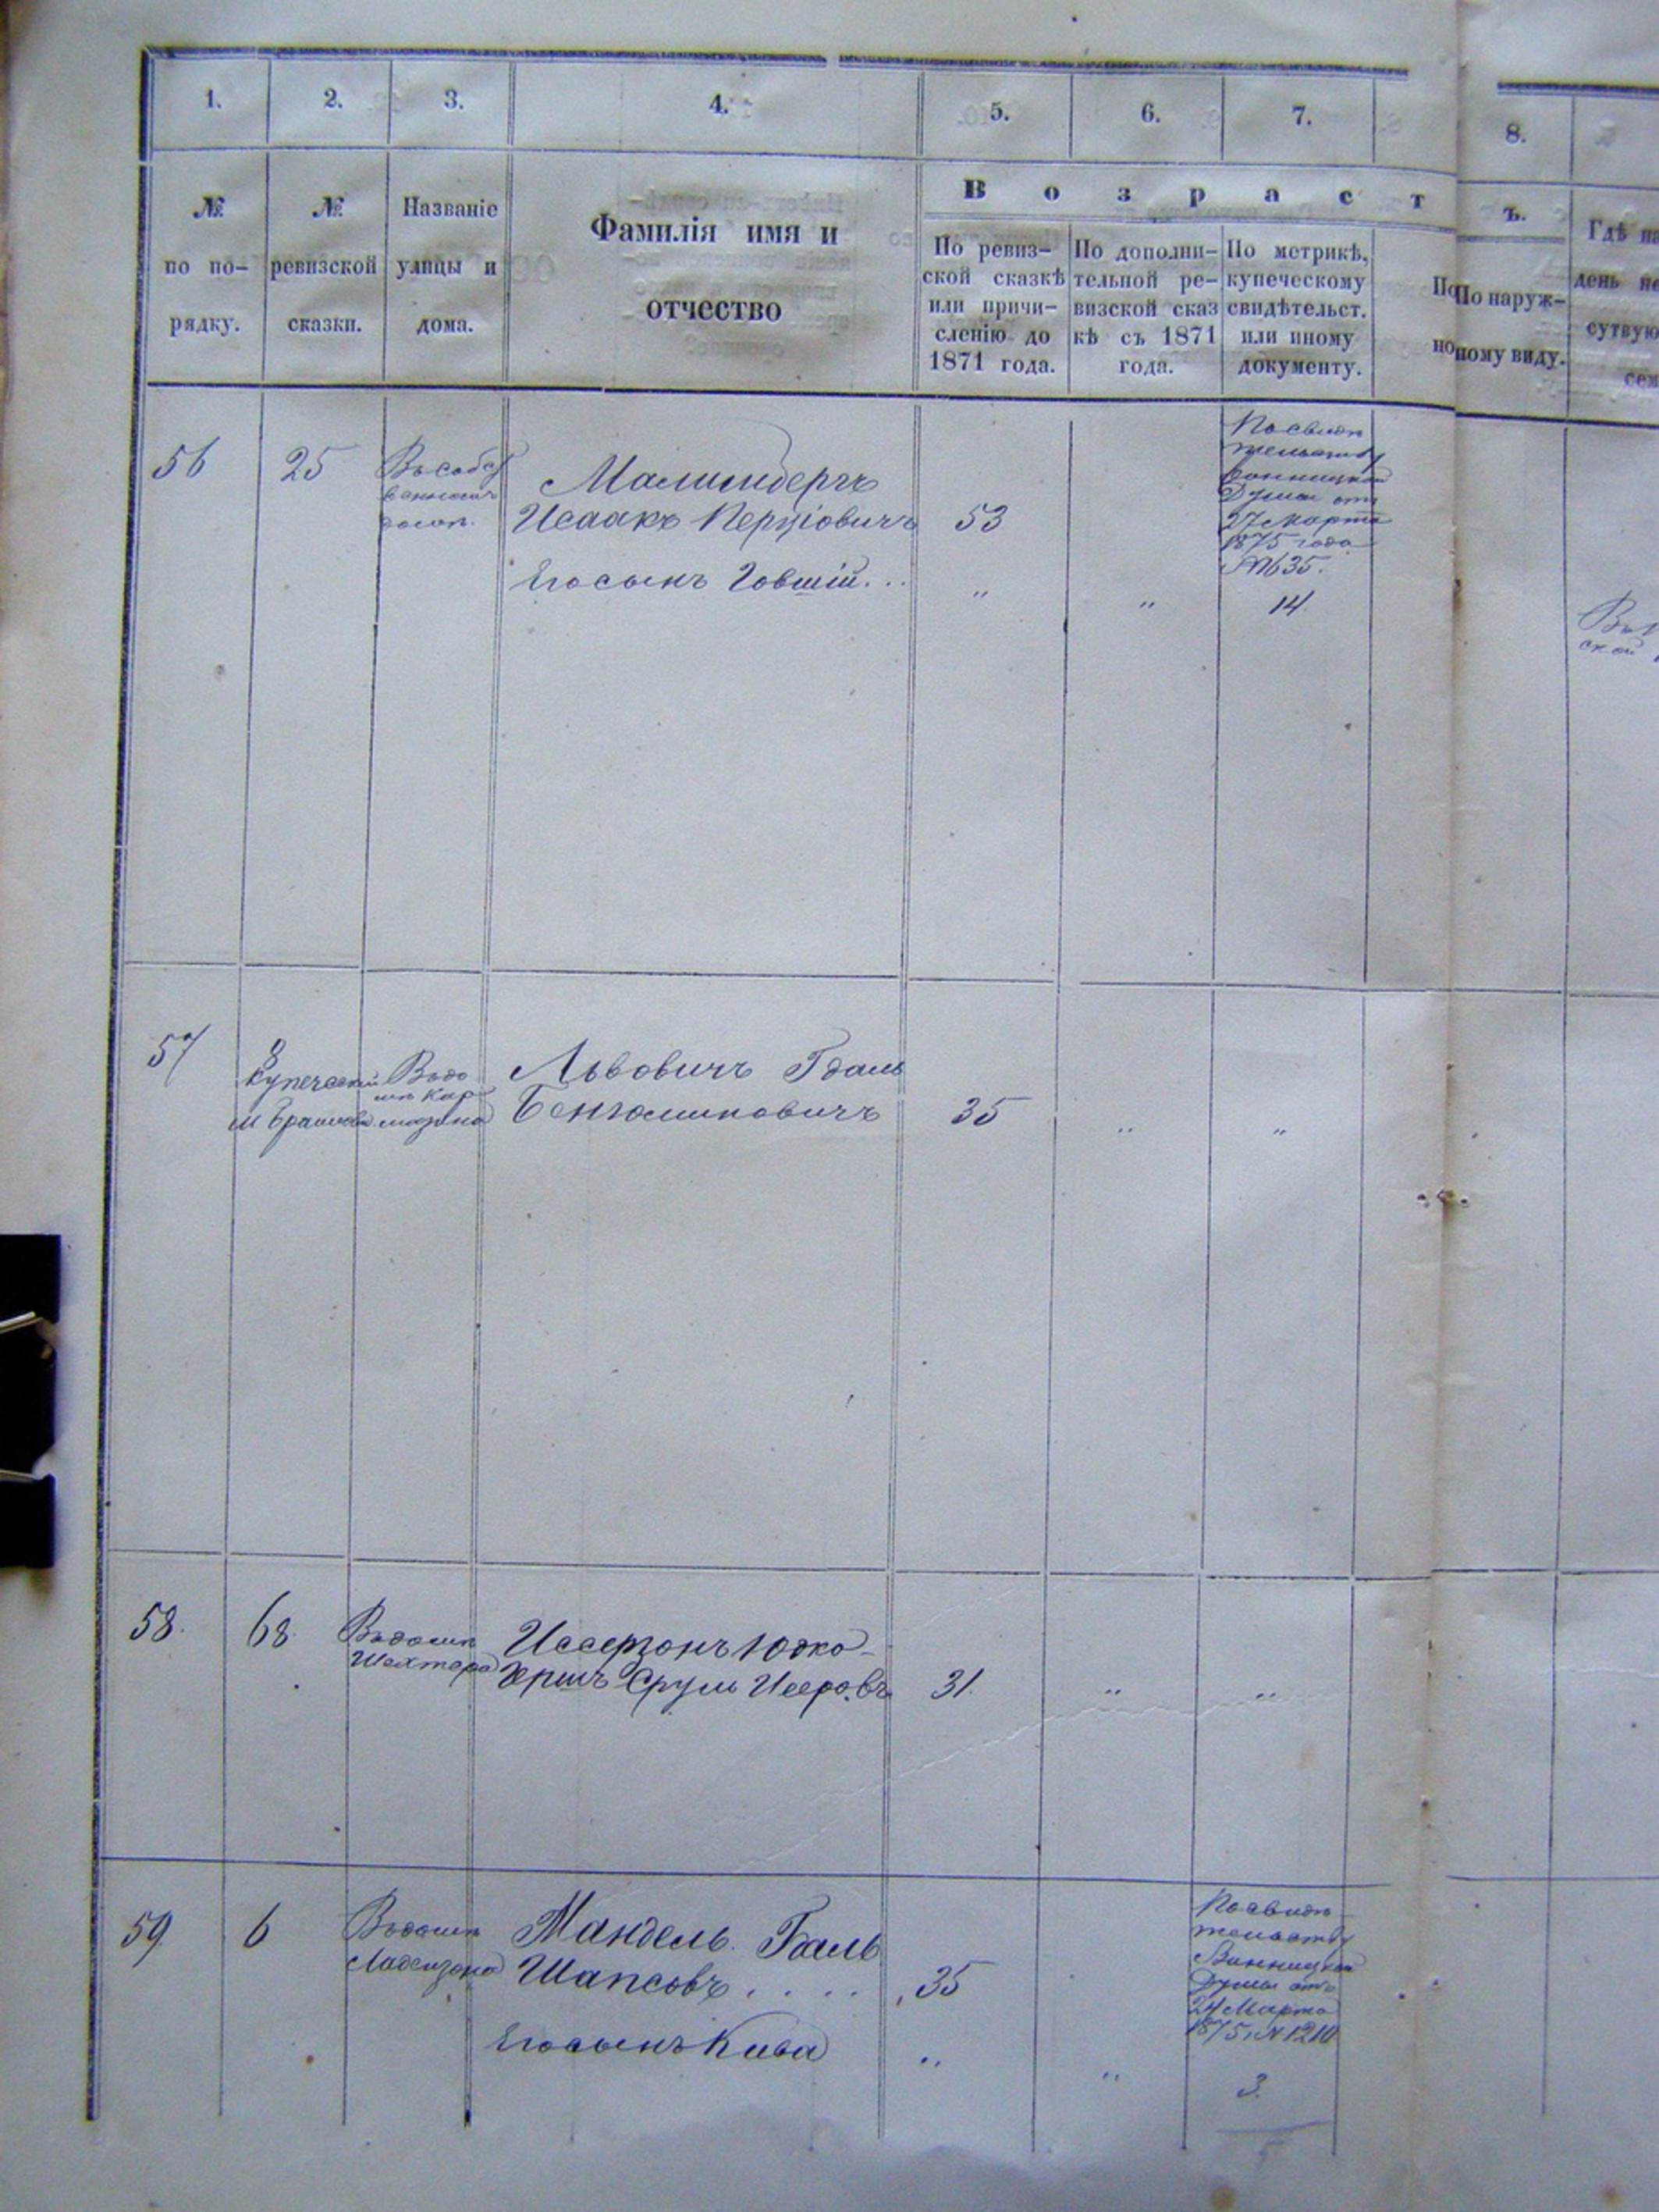 1. 2. 3. 4. 5. 6. 7. 8.
№ по по-рядку.
№ ревизской сказки.
Названіе улицы и дома.
Фамилія имя и отчество
В о з р а с т ъ.
По ревиз-
ской сказкѣ
или причи-
сленію до
1871 года.
По дополни-
тельной ре-
визской сказ
кѣ съ 1871
года.
По метрикѣ,
купеческому
свидѣтельст.
или иному
документу.
По наруж-
ному виду.
Гдѣ на
день не
сутвую
сем
56 25
Въ собст
венномъ
домѣ.
Малинбергъ
Исаакъ Перціовичъ 53
По свидѣ
тельству
Винницкой
Думы отъ
27 Марта
1875 года
№ 635.
Его сынъ Говшій... " " 14.
57
8
Купеческій
Въ до
мѣ Кар
Львовичъ Гдаль
Бенюминовичъ 35 " "
58. 68.
Въ домѣ
Шехтера
Иссерзонъ Юдко-
Гершъ Сруль Исеровъ 31. " "
59. 6
Въ домѣ
Мандель Гдаль
Шапсовъ.... 35
По свидѣ-
тельству
Винницкой
Думы отъ
24 Марта
1875 г. № 1210
Его сынъ Кива " " 3.